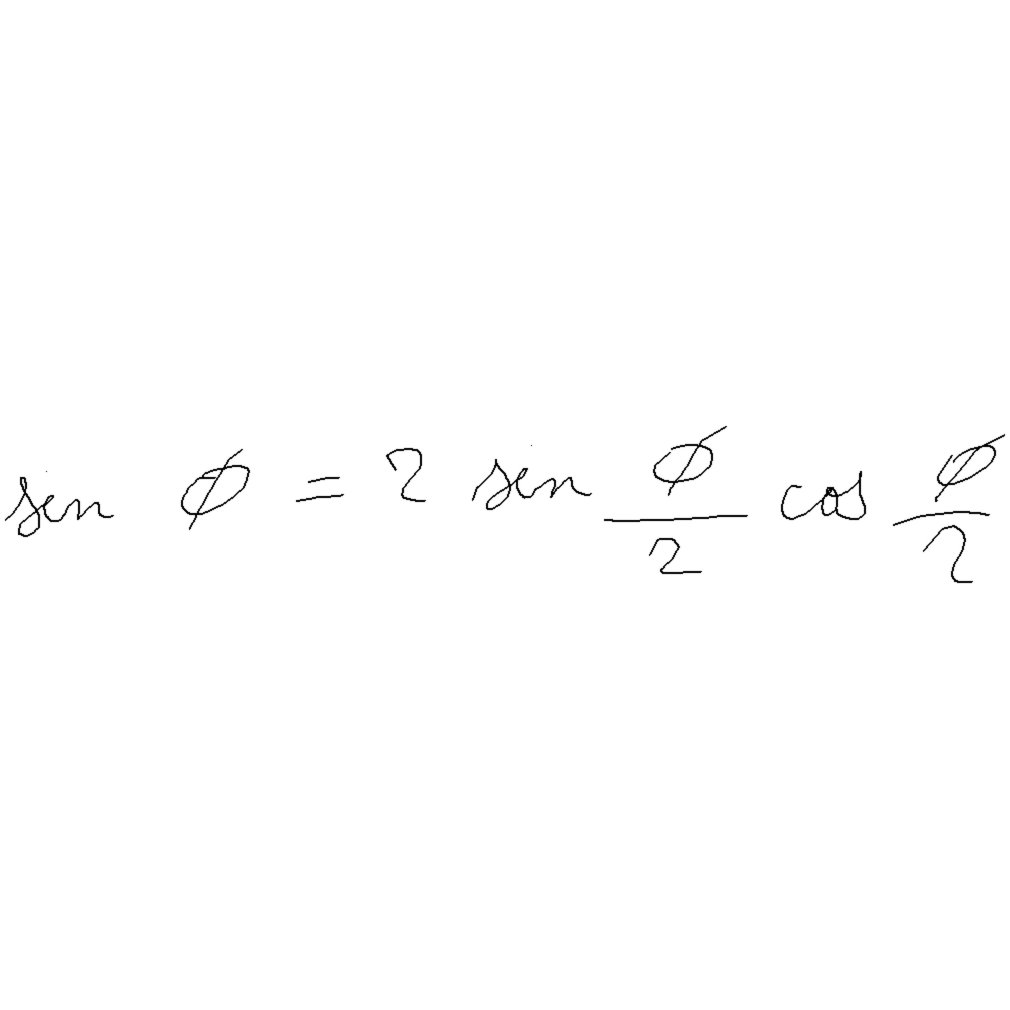 sen ϕ = 2 sen ϕ/2 cos ϕ/2